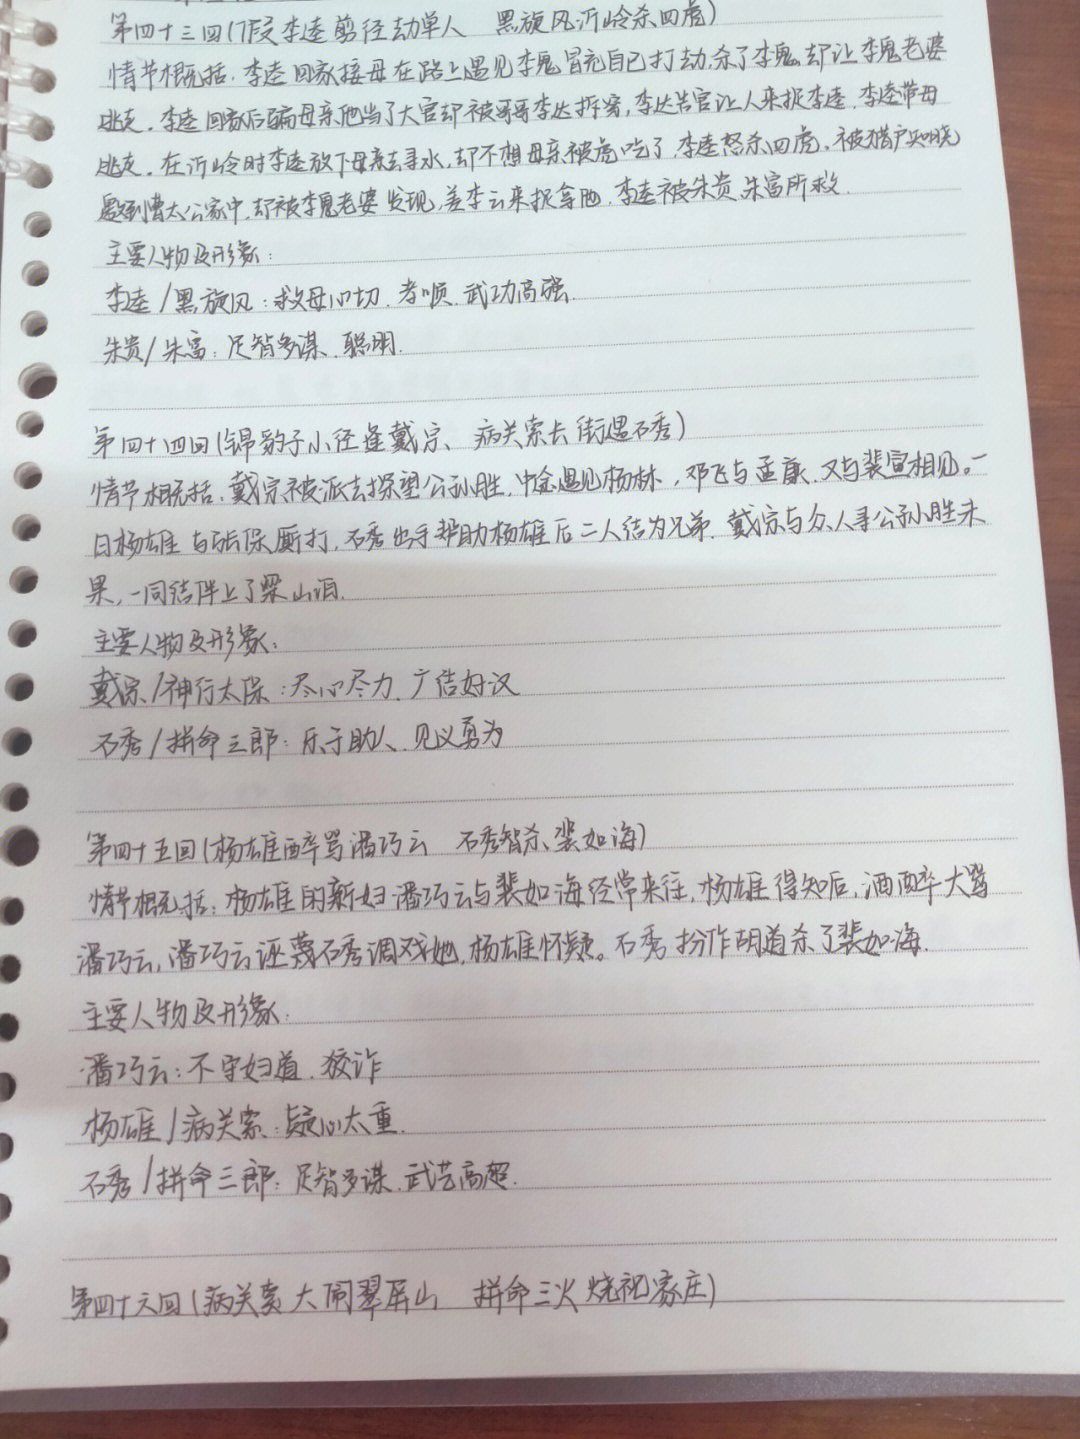 第四十三回(假李逵剪径劫单人 黑旋风沂岭杀四虎)
情节概括:李逵回家接母在路上遇见李鬼冒充自己打劫,杀了李鬼却让李鬼老婆
逃走。李逵回家后骗母亲他当了大官却被哥哥李达拆穿,李达告官让人来捉李逵,李逵带母
逃走。在沂岭时李逵放下母亲去寻水,却不想母亲被虎吃了,李逵怒杀四虎。被猎户知晓
邀到曹太公家中,却被李鬼老婆发现,差李云来捉拿他,李逵被朱贵、朱富所救.
主要人物及形象:
李逵/黑旋风:救母心切、孝顺、武功高强.
朱贵/朱富:足智多谋、聪明.
第四十四回(锦豹子小径逢戴宗、病关索长街遇石秀)
情节概括:戴宗被派去探望公孙胜,中途遇见杨林,邓飞与孟康、又与裴宣相见。一
日杨雄与张保厮打,石秀出手帮助杨雄后二人结为兄弟、戴宗与众人寻公孙胜未
果,一同结伴上了梁山泊.
主要人物及形象:
戴宗/神行太保:尽心尽力、广结好汉
石秀/拼命三郎:乐于助人、见义勇为
第四十五回(杨雄醉骂潘巧云 石秀智杀裴如海)
情节概括:杨雄的新妇潘巧云与裴如海经常来往,杨雄得知后,酒醉大骂
潘巧云,潘巧云诬蔑石秀调戏她,杨雄怀疑。石秀扮作胡道杀了裴如海.
主要人物及形象:
潘巧云:不守妇道、狡诈
杨雄/病关索:疑心太重.
石秀/拼命三郎:足智多谋、武艺高超.
第四十六回(病关索大闹翠屏山 拼命三火烧祝家庄)